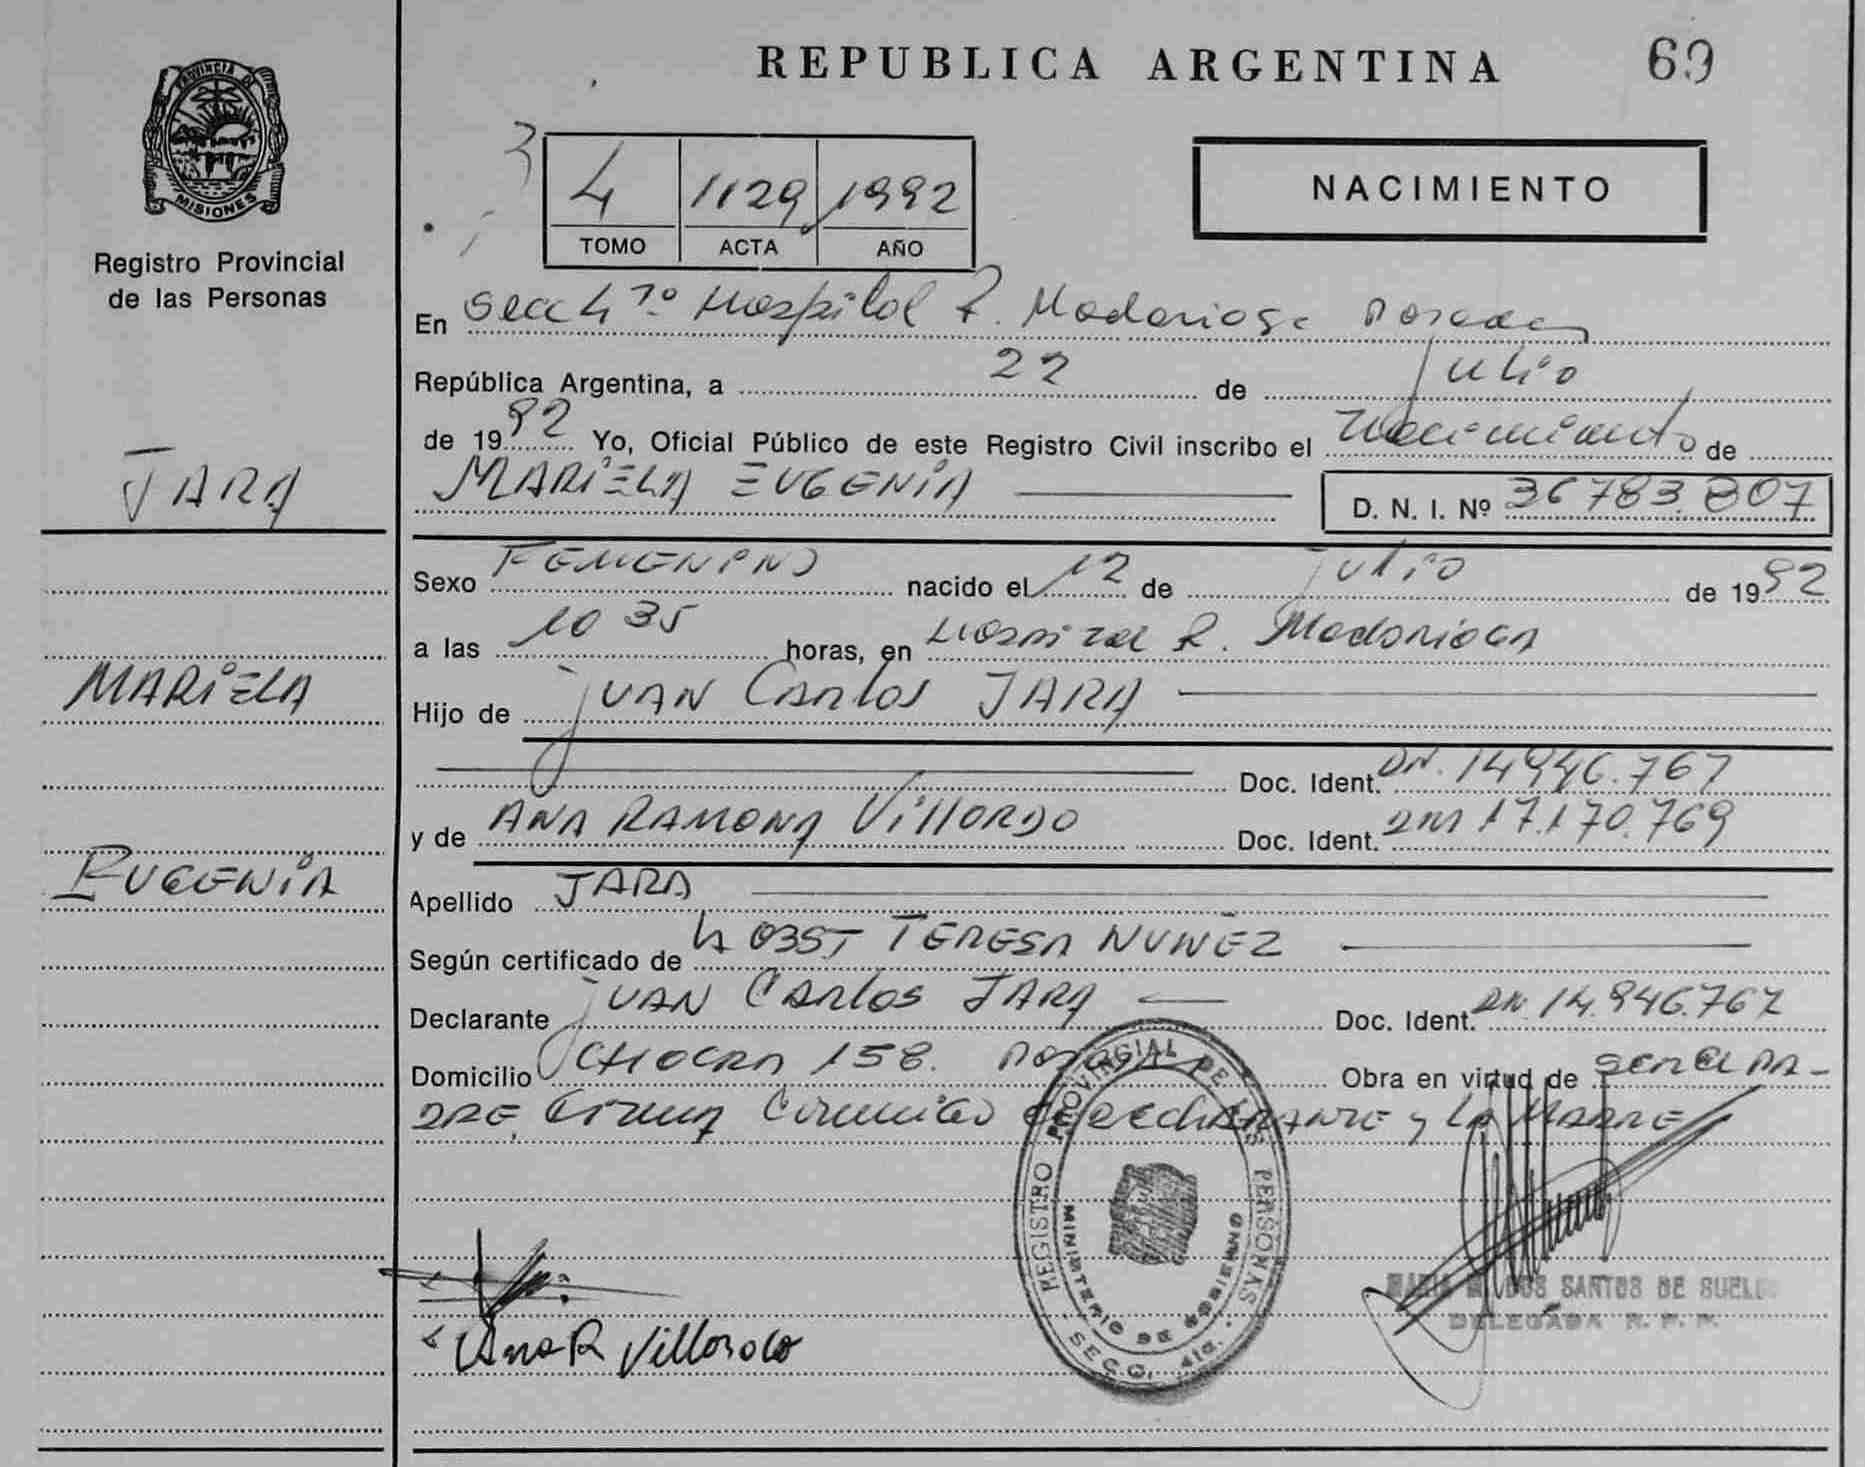 REPUBLICA ARGENTINA 69
PROVINCIA DE MISIONES
Registro Provincial
de las Personas
4 1129 1992
TOMO ACTA AÑO
NACIMIENTO
En Secc 4ta Hospital R. Madariaga Posadas
República Argentina, a 22 de Julio
de 1992 Yo, Oficial Público de este Registro Civil inscribo el Nacimiento de
JARA
MARIELA EUGENIA D. N. I. Nº 36783.807
Sexo FEMENINO nacido el 12 de julio de 1992
a las 10 35 horas, en Hospital R. Madariaga
MARIELA
Hijo de JUAN Carlos JARA
Doc. Ident. DN. 14946.767
y de ANA RAMONA Villordo Doc. Ident. DNI 17.170.769
EUGENIA
Apellido JARA
Según certificado de OBST TERESA NUÑEZ
Declarante JUAN Carlos JARA Doc. Ident. DN 14.946.767
Domicilio 158. Posadas Obra en virtud de ser el PA-
DRE, Firma el declarante y La MADRE
REGISTRO PROVINCIAL DE LAS PERSONAS
MINISTERIO DE GOBIERNO
SECC. 4ta.
MARIA DOS SANTOS DE
DELEGADA R. P. P.
Ana R Villordo